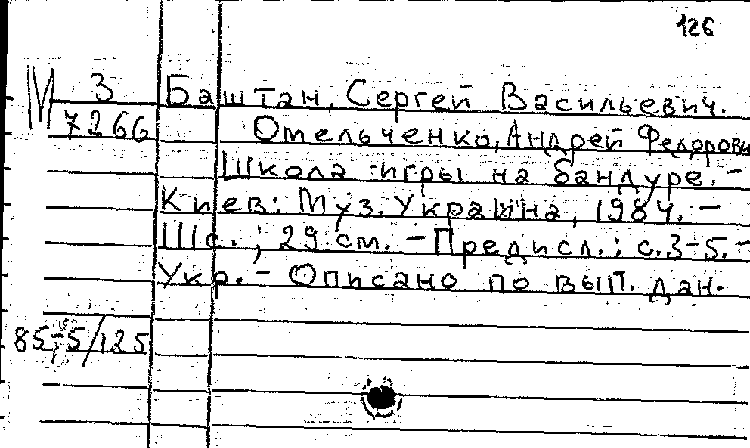 126
М 3
7266
Баштан, Сергей Васильевич.
Омельченко, Андрей Федорови
Школа игры на бандуре. -
Киев: Муз. Украина, 1984. -
111с.; 29 см. - Предисл.: с.3-5. -
Укр. - Описано по вып. дан.
85-5/125